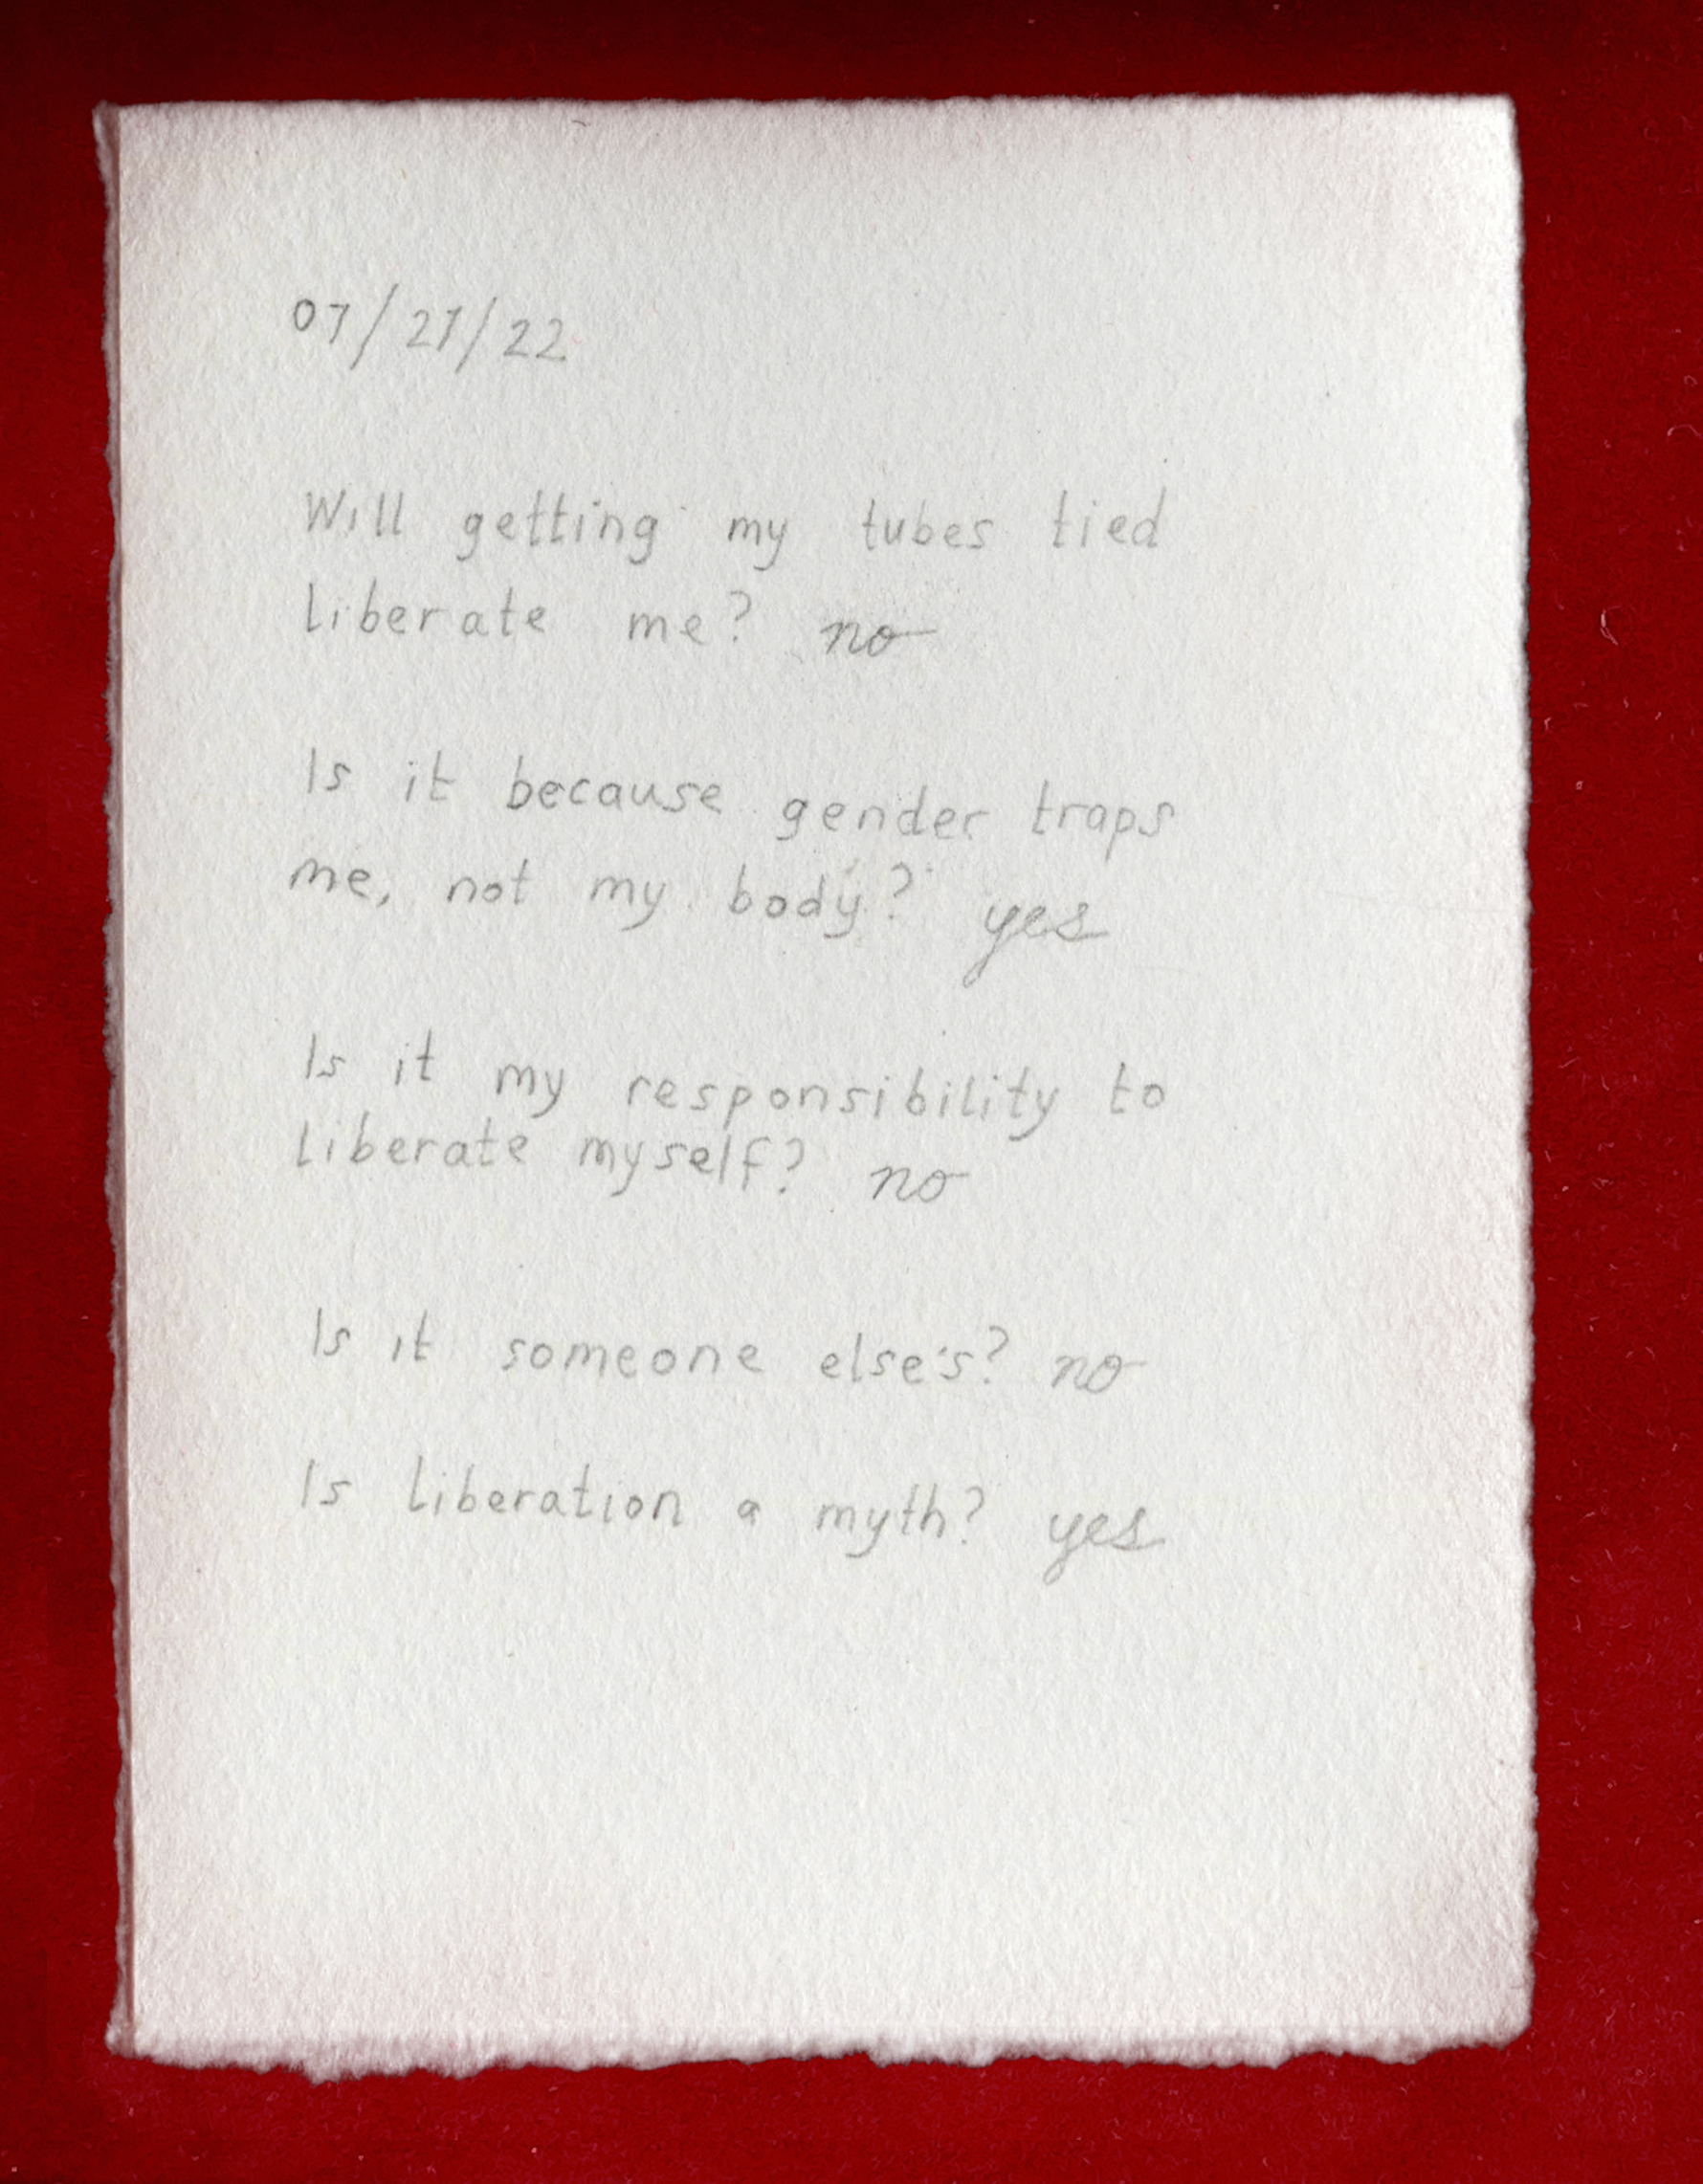 07/21/22
Will getting my tubes tied
liberate me? no
Is it because gender traps
me, not my body? yes
Is it my responsibility to
liberate myself? no
Is it someone else's? no
Is liberation a myth? yes